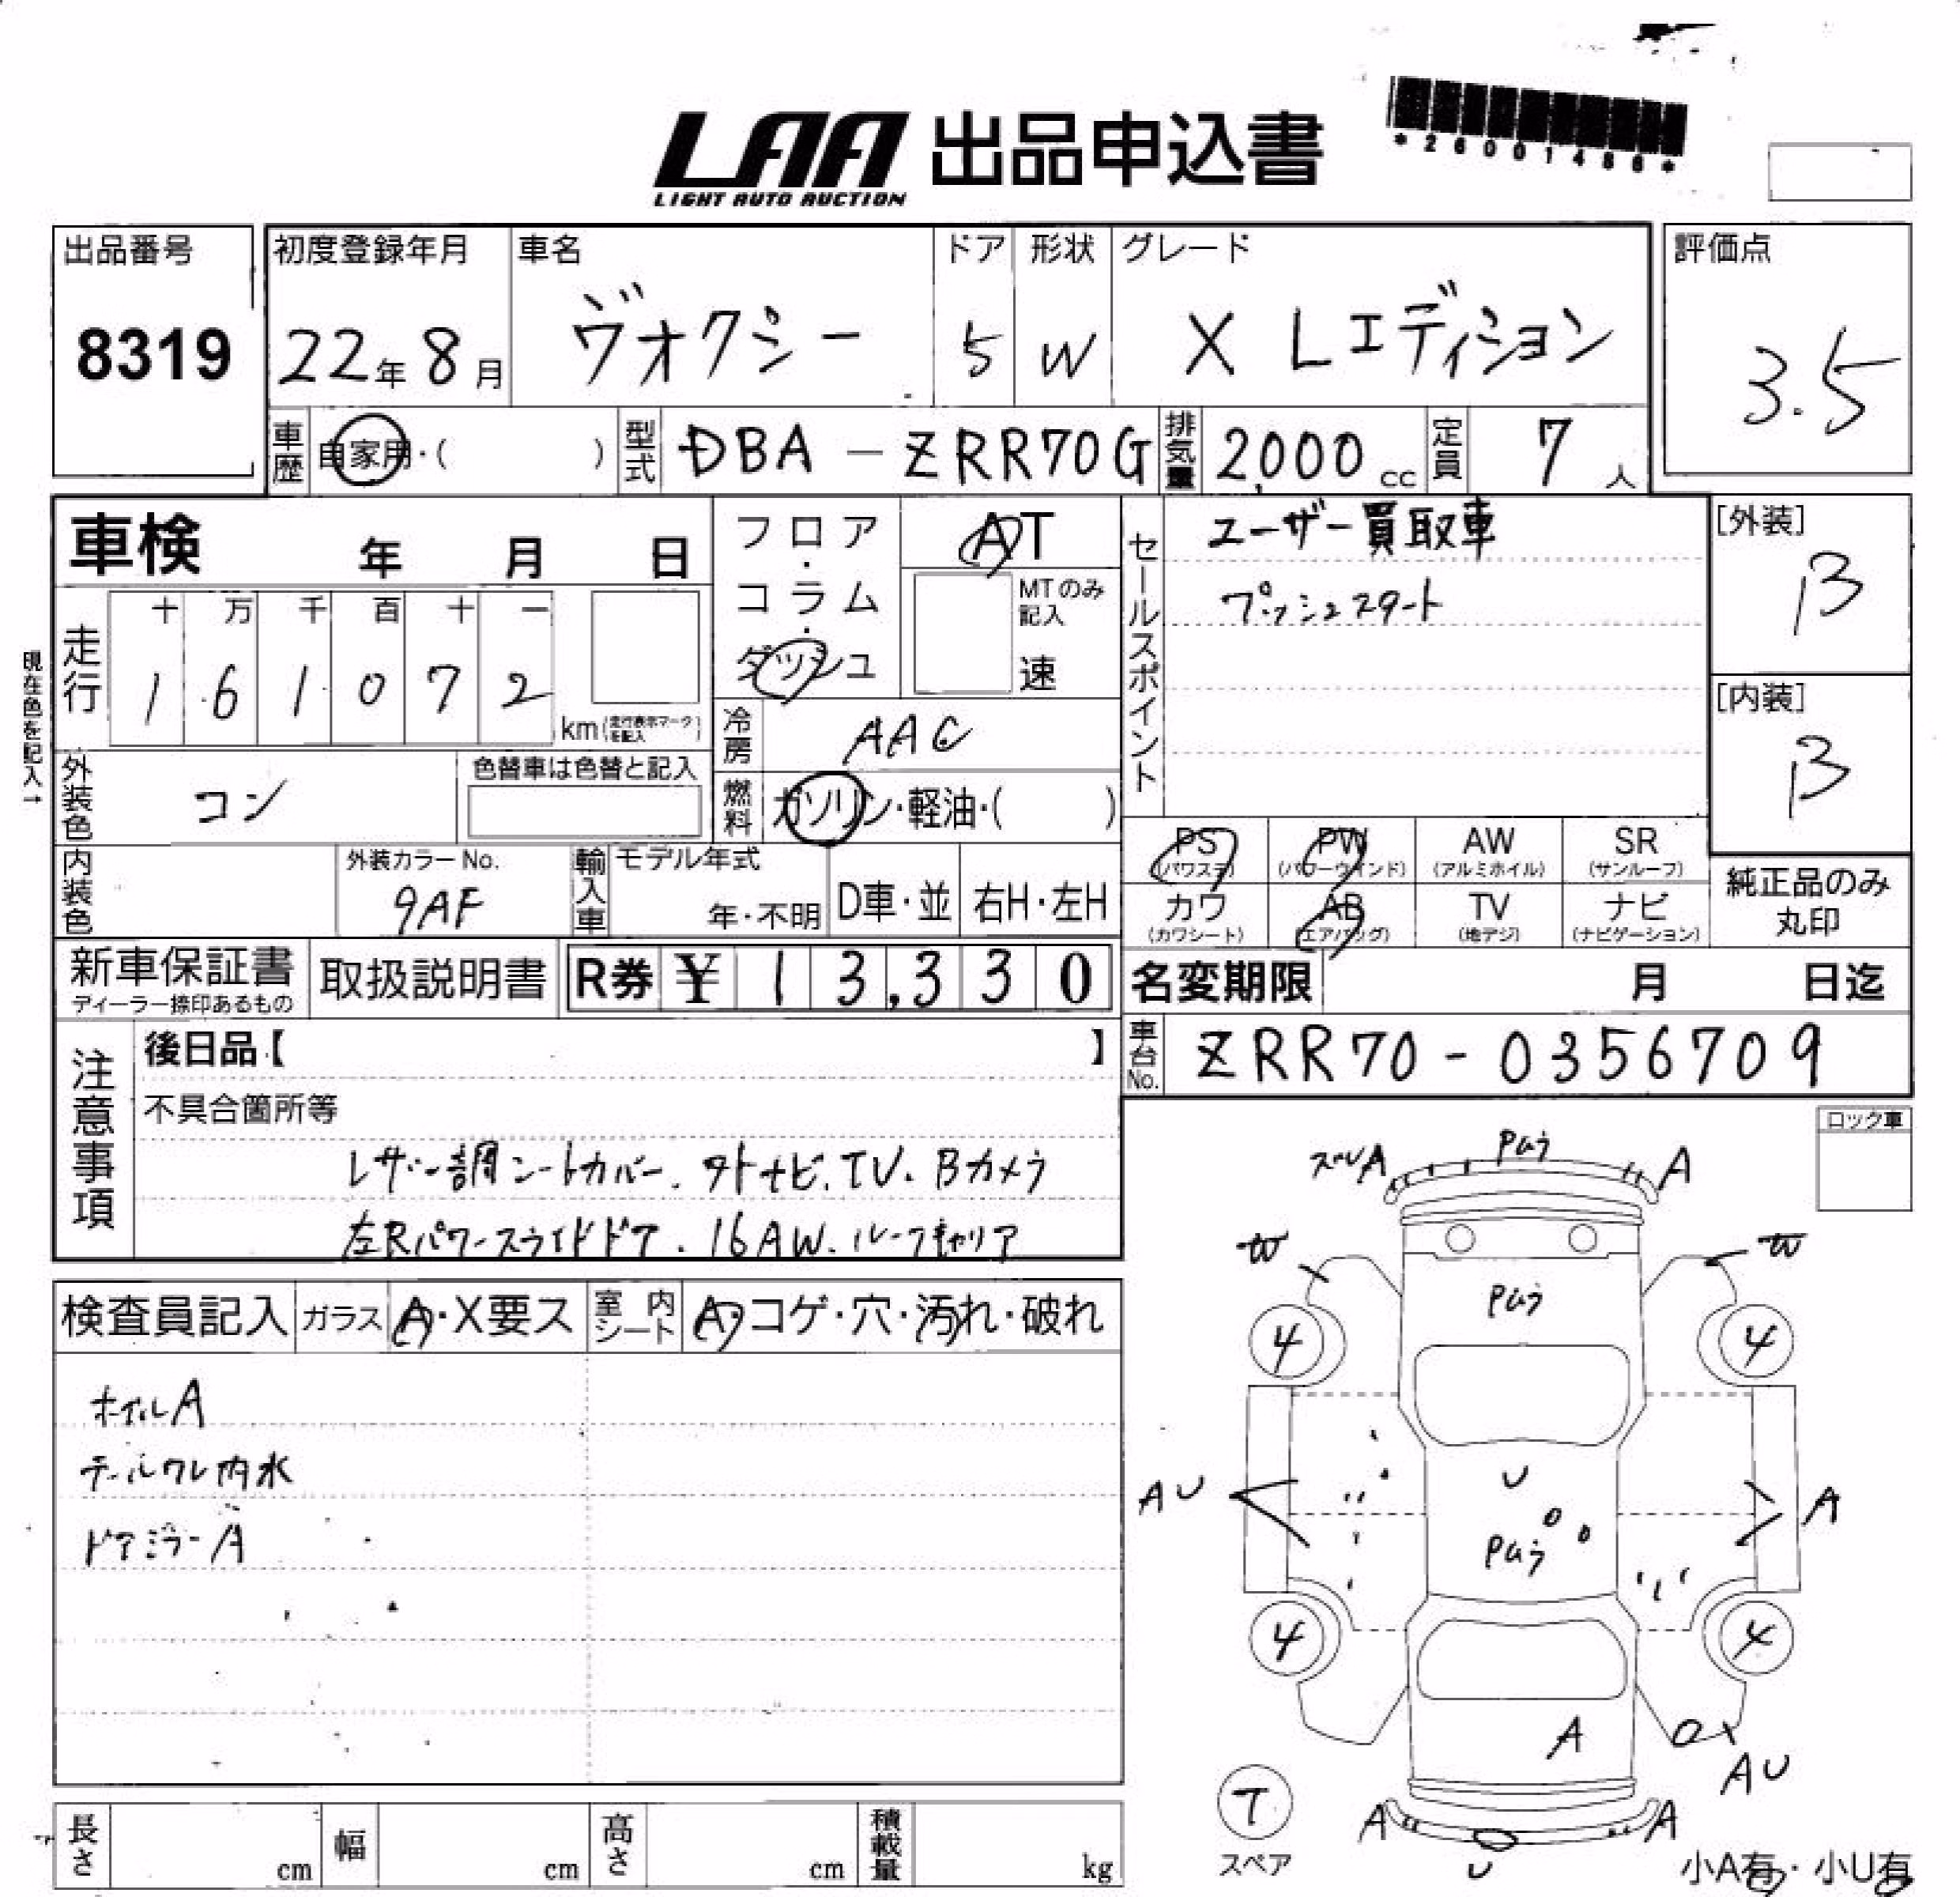 LAA 出品申込書
LIGHT AUTO AUCTION
*26001486*
出品番号
8319
初度登録年月
22年 8月
車名
ヴォクシー
ドア
5
形状
W
グレード
X Lエディション
評価点
3.5
車歴
自家用・( )
型式
DBA-ZRR70G
排気量
2,000 cc
定員
7人
車検 年 月 日
フロア・コラム・ダッシュ
AT
MTのみ記入
速
セールスポイント
ユーザー買取車
プッシュスタート
[外装]
B
[内装]
B
現在色を記入→
走行
十 万 千 百 十 一
1 6 1 0 7 2
km(走行表示マークを記入)
冷房
AAC
外装色
コン
色替車は色替と記入
燃料
ガソリン・軽油・( )
内装色
外装カラーNo.
9AF
輸入車
モデル年式
年・不明
D車・並
右H・左H
PS
(パワステ)
PW
(パワーウインド)
AW
(アルミホイル)
SR
(サンルーフ)
カワ
(カワシート)
AB
(エアバッグ)
TV
(地デジ)
ナビ
(ナビゲーション)
純正品のみ
丸印
新車保証書
ディーラー捺印あるもの
取扱説明書
R券 ¥ 13,330
名変期限 月 日迄
車台No.
ZRR70-0356709
注意事項
後日品【 】
不具合箇所等
レザー調シートカバー、外ナビ、TV、Bカメラ
左Rパワースライドドア、16AW、ルーフキャリア
ロック車
検査員記入
ガラス
A・X要ス
室内シート
A・コゲ・穴・汚れ・破れ
ホイルA
テールクレ内水
ドアミラーA
A
Paう
A
W
W
Paう
4
4
AU
U
A
Paう
4
4
A
AU
T
スペア
A
A
U
小A有・小U有
長さ
cm
幅
cm
高さ
cm
積載量
kg